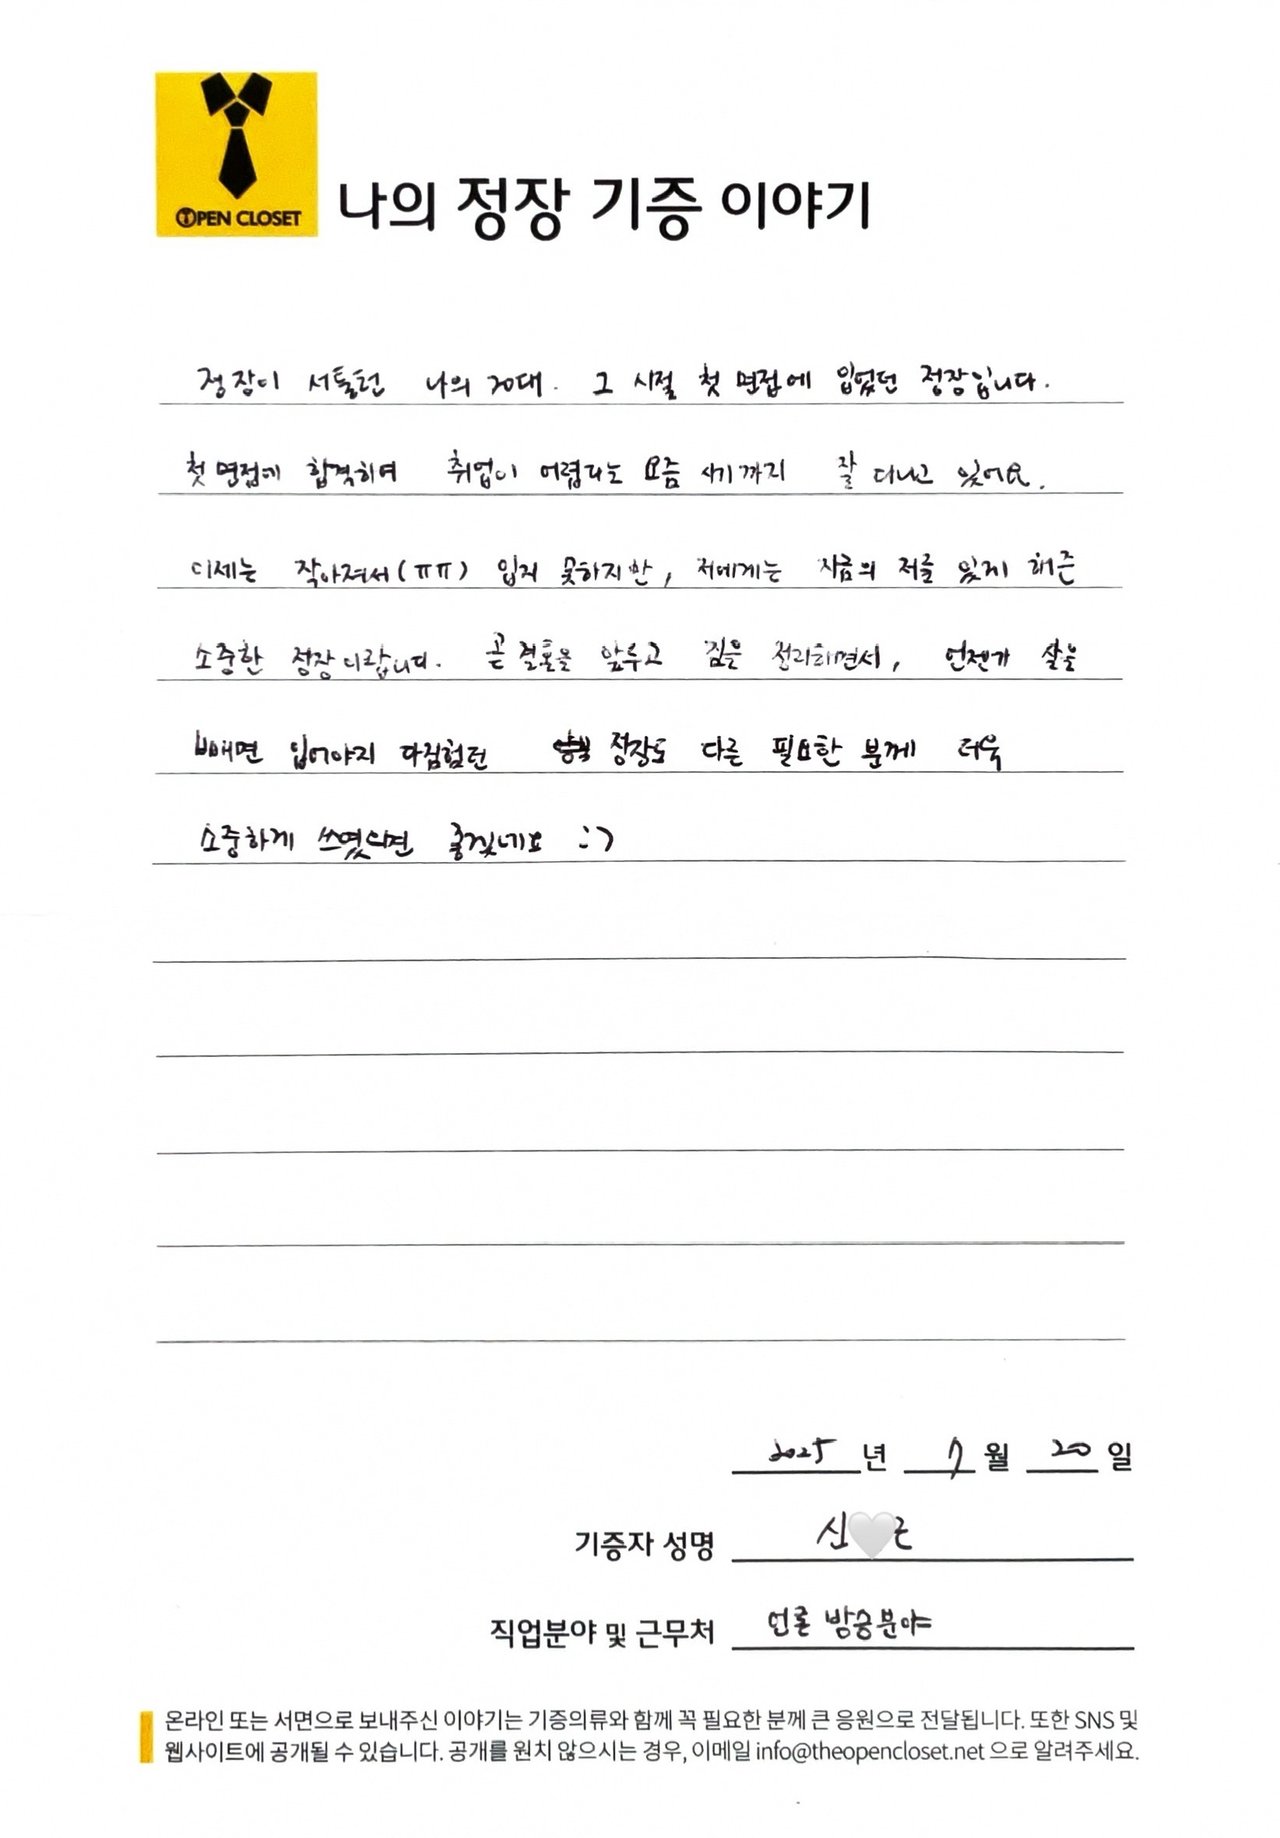 OPEN CLOSET
나의 정장 기증 이야기
정장이 서툴던 나의 20대. 그 시절 첫 면접에 입었던 정장입니다.
첫 면접에 합격하여 취업이 어렵다는 요즘 시기까지 잘 다니고 있어요.
이제는 작아져서(ㅠㅠ) 입지 못하지만, 저에게는 지금의 저를 있게 해준
소중한 정장이랍니다. 곧 결혼을 앞두고 짐을 정리하면서, 언젠가 살을
빼면 입어야지 다짐했던 정장도 다른 필요한 분께 더욱
소중하게 쓰였으면 좋겠네요 :)
2025 년 7 월 20 일
기증자 성명 신
직업분야 및 근무처 언론 방송분야
온라인 또는 서면으로 보내주신 이야기는 기증의류와 함께 꼭 필요한 분께 큰 응원으로 전달됩니다. 또한 SNS 및
웹사이트에 공개될 수 있습니다. 공개를 원치 않으시는 경우, 이메일 info@theopencloset.net 으로 알려주세요.